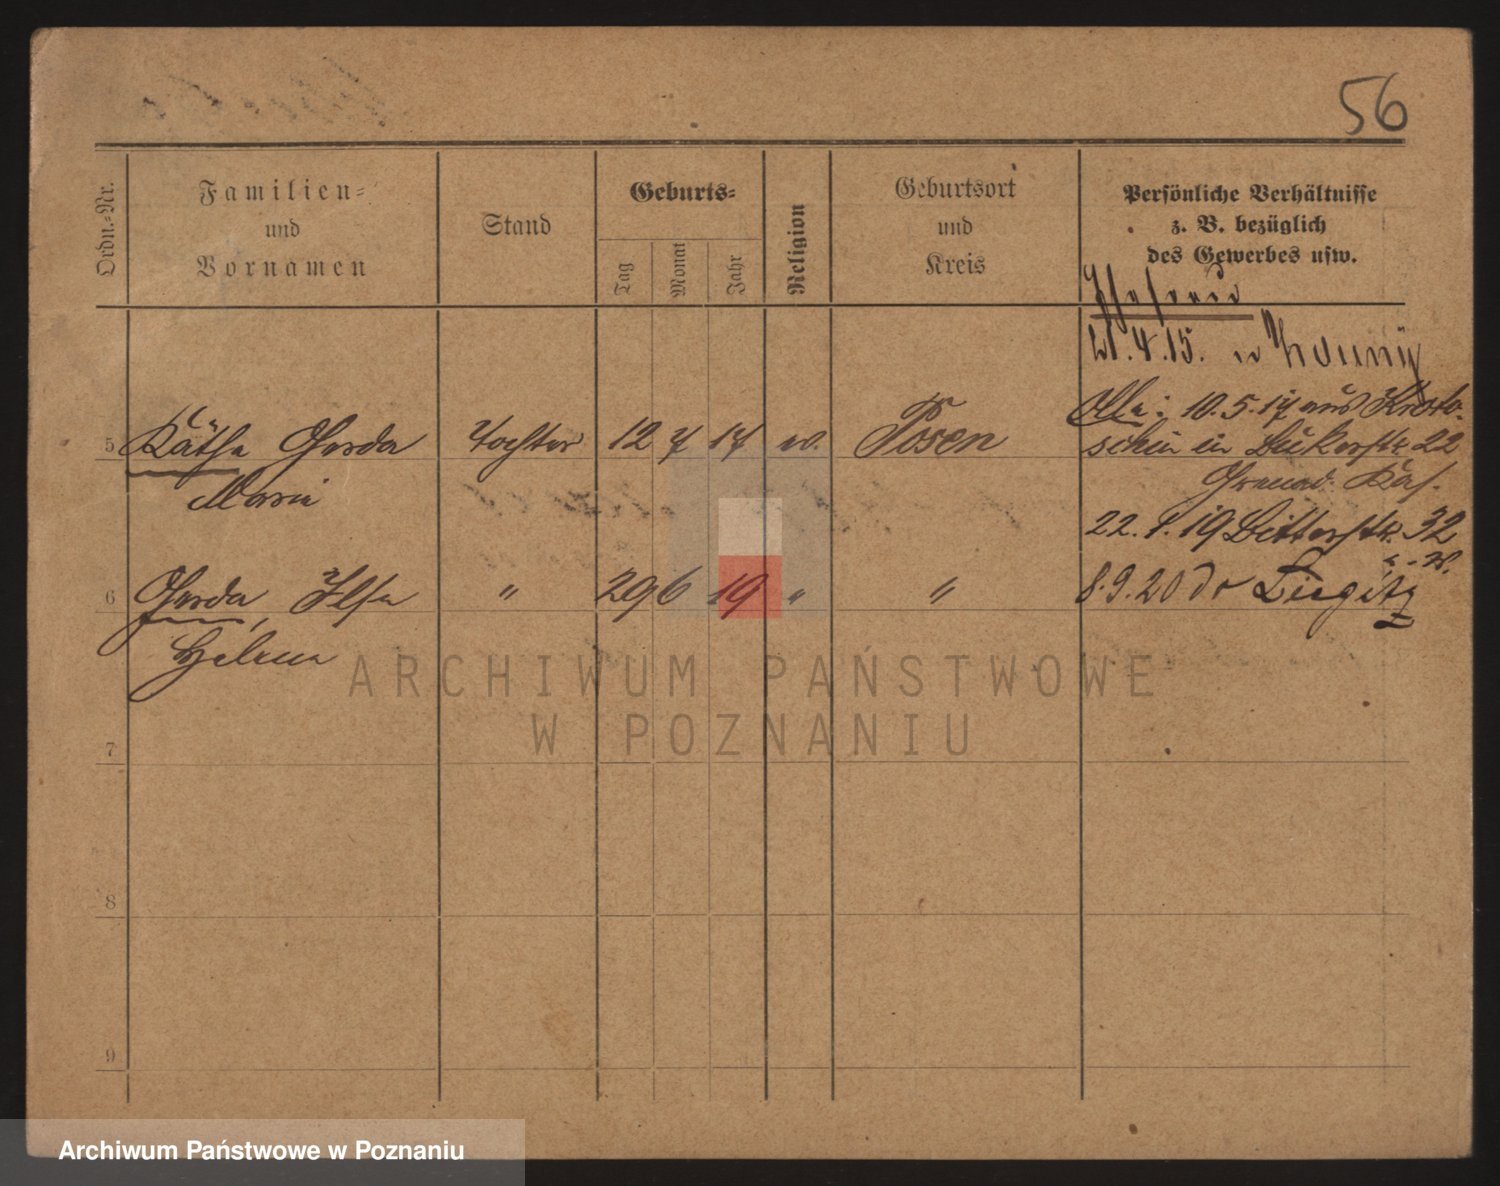 56
Ordn.=Nr.
Familien=
und
Vornamen
Stand
Geburts=
Tag
Monat
Jahr
Religion
Geburtsort
und
Kreis
Persönliche Verhältnisse
z. B. bezüglich
des Gewerbes usw.
Ehefrau
21.4.15.
Olle: 10.5.17 aus Kroto-
5 Käthe Gerda Tochter 12 7 17 ev. Posen schin in Bukerstr. 22
Marie
Grenad. Kas.
22.1.19 Bitterstr. 32
6 Gerda, Ilse " 29 6 19 " " 8.9.20 do Liegitz
Helene
ARCHIWUM PAŃSTWOWE
W POZNANIU
7
8
9
Archiwum Państwowe w Poznaniu